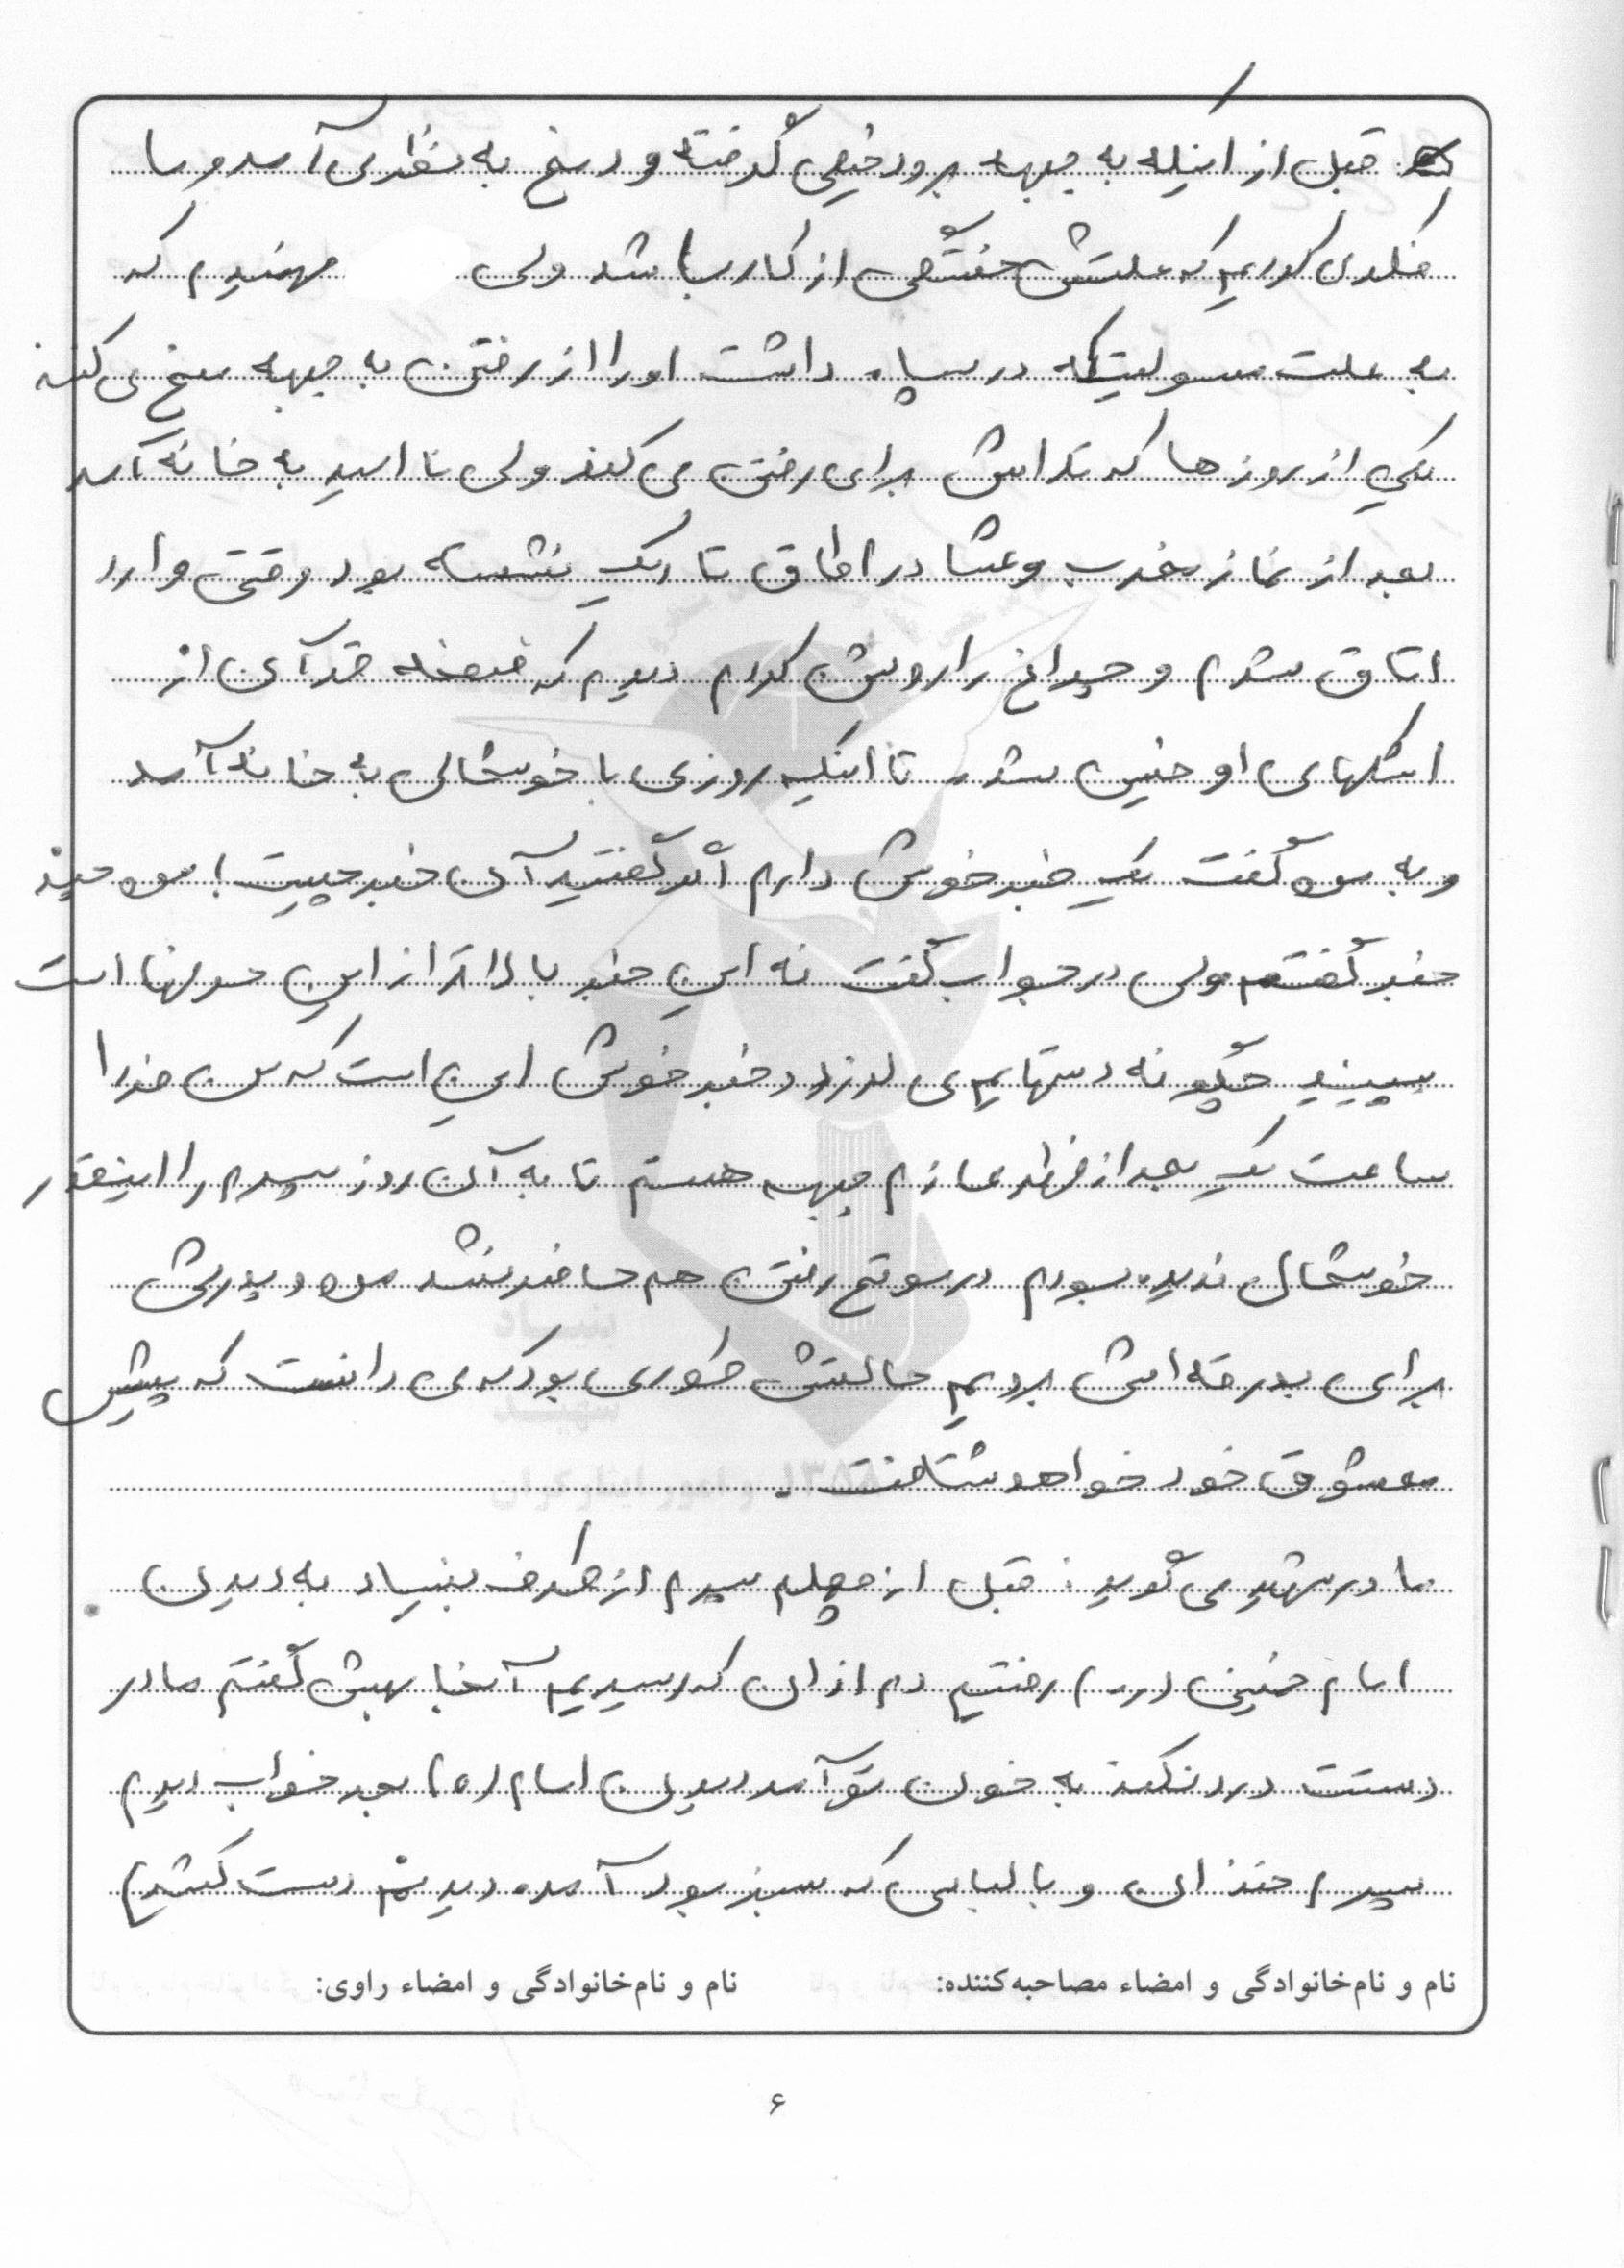 قبل از اینکه به جبهه برود خیلی گرفته و در سخ به نظر می آمد و ما
فکر می کردیم که علتش خستگی از کار باشد ولی فهمیدم که
به علت مسولیتیکه در سپاه داشت او را از رفتن به جبهه منع می کنند
یکی از روزها که تلاش برای رفتن می کند ولی نا امید به خانه آمد
بعد از نماز مغرب و عشا در اطاق تاریک نشسته بود وقتی وارد
اتاق شدم و چراغ را روشن کردم دیدم که صفحه قرآن از
اشکهای او خیس شد. تا اینکه روزی با خوشحالی به خانه آمد
و به من گفت یک خبر خوش دارم اگر گفتید آن خبر چیست؟ من چند
خبر گفتم ولی در جواب گفت نه این خبر بالاتر از این حرفها است
ببینید چگونه دستهایم می لرزد و خبر خوش این است که من فردا
ساعت یک بعد از ظهر عازم جبهه هستم تا به آن روز پسرم را اینقدر
خوشحال ندیده بودم در موقع رفتن هم حاضر نشد من و پدرش
برای بدرقه اش برویم حالتش طوری بود که می دانست که پیش
معشوق خود خواهد شتافت.
مادر شهید می گوید: قبل از چهلم پسرم از طرف بنیاد به دیدن
امام خمینی (ره) رفتیم دم اذان که رسیدیم آنجا بهش گفتم مادر
دستت درد نکند به خون تو آمد دیدن امام (ره) بعد خواب دیدم
پسرم خندان و با لباسی که سبز بود آمده دیدم دست کشید
نام و نام‌خانوادگی و امضاء مصاحبه‌کننده: نام و نام‌خانوادگی و امضاء راوی:
۶